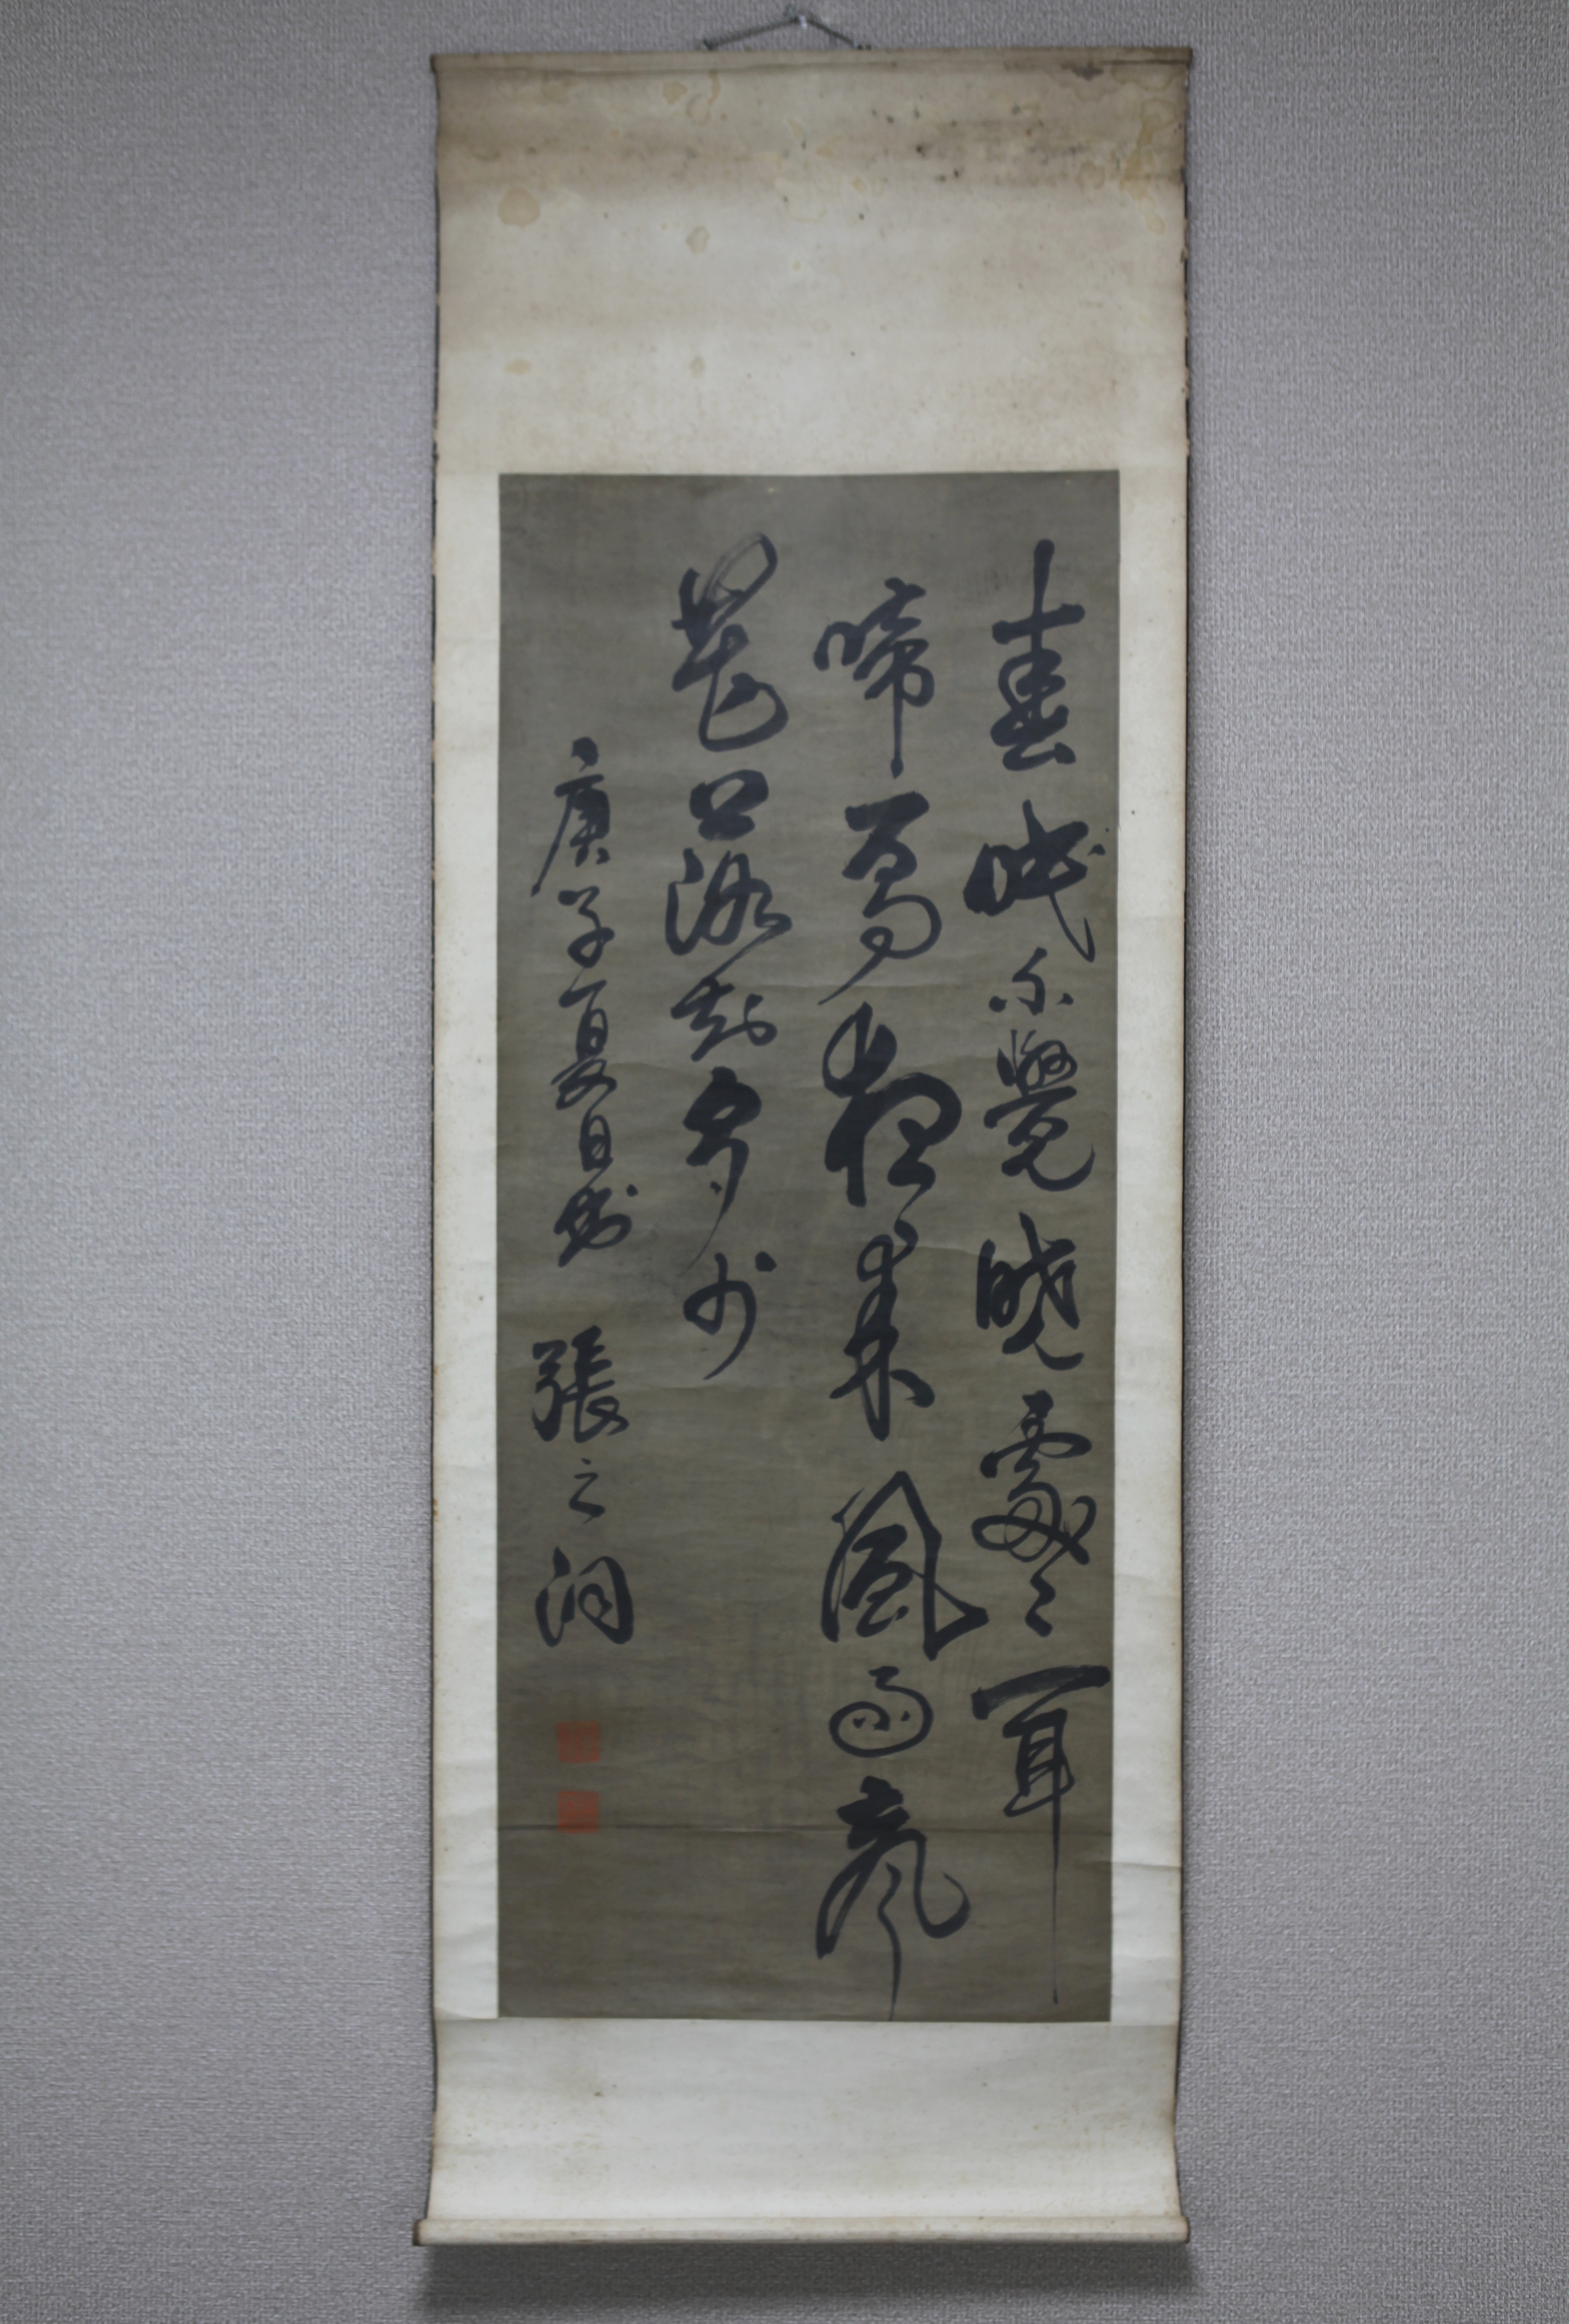 春眠不覺曉處々聞
啼鳥夜來風雨聲
花落知多少
庚子夏日書 張之洞